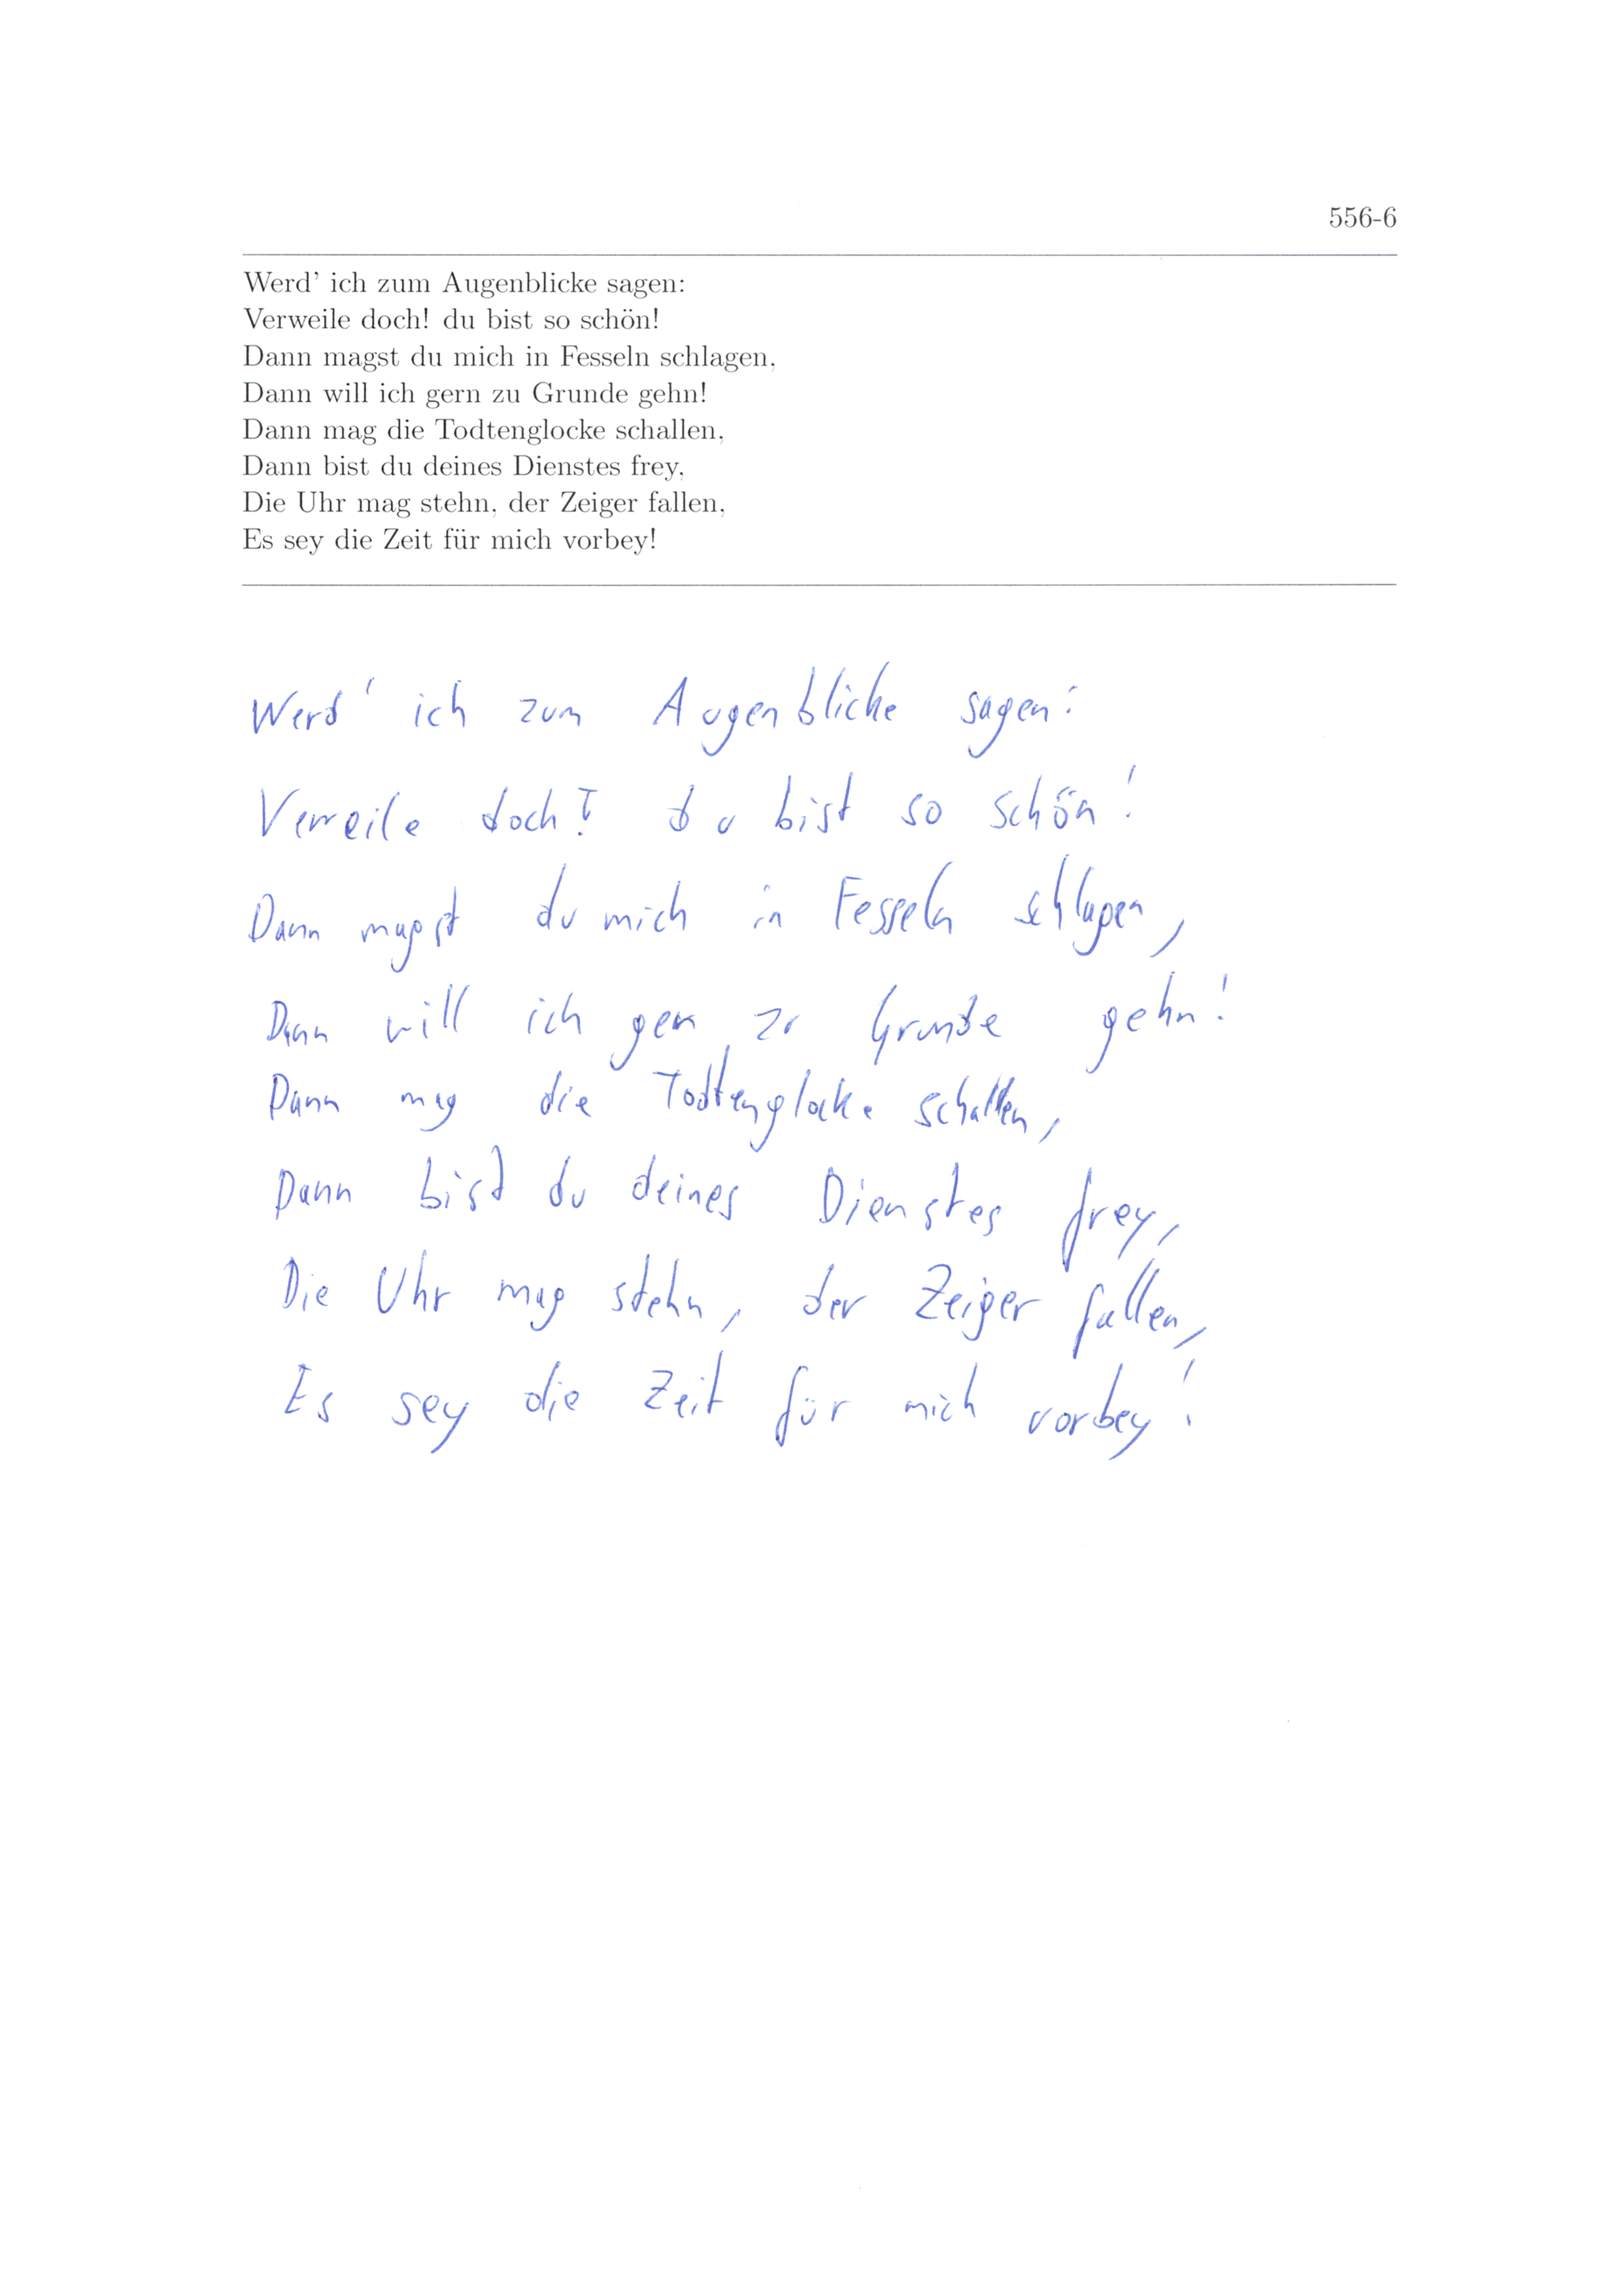 556-6
Werd' ich zum Augenblicke sagen:
Verweile doch! du bist so schön!
Dann magst du mich in Fesseln schlagen,
Dann will ich gern zu Grunde gehn!
Dann mag die Todtenglocke schallen,
Dann bist du deines Dienstes frey,
Die Uhr mag stehn, der Zeiger fallen,
Es sey die Zeit für mich vorbey!
Werd' ich zum Augenblicke sagen:
Verweile doch! du bist so schön!
Dann magst du mich in Fesseln schlagen,
Dann will ich gern zu Grunde gehn!
Dann mag die Todtenglocke schallen,
Dann bist du deines Dienstes frey,
Die Uhr mag stehn, der Zeiger fallen,
Es sey die Zeit für mich vorbey!